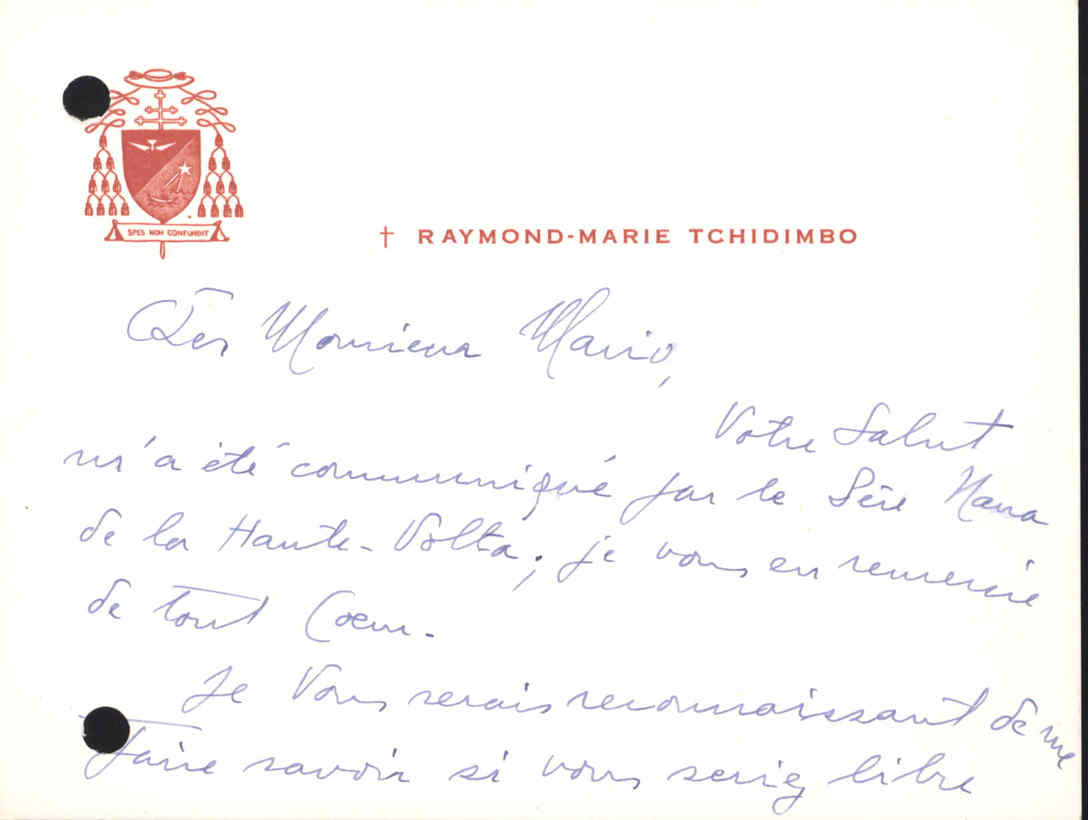 SPES NON CONFUNDIT
† RAYMOND-MARIE TCHIDIMBO
Monsieur Mario,
Votre Salut
m'a été communiqué par le Père Nana
de la Haute-Volta; je vous en remercie
de tout Cœur.
Je Vous serais reconnaissant de me
faire savoir si vous seriez libre